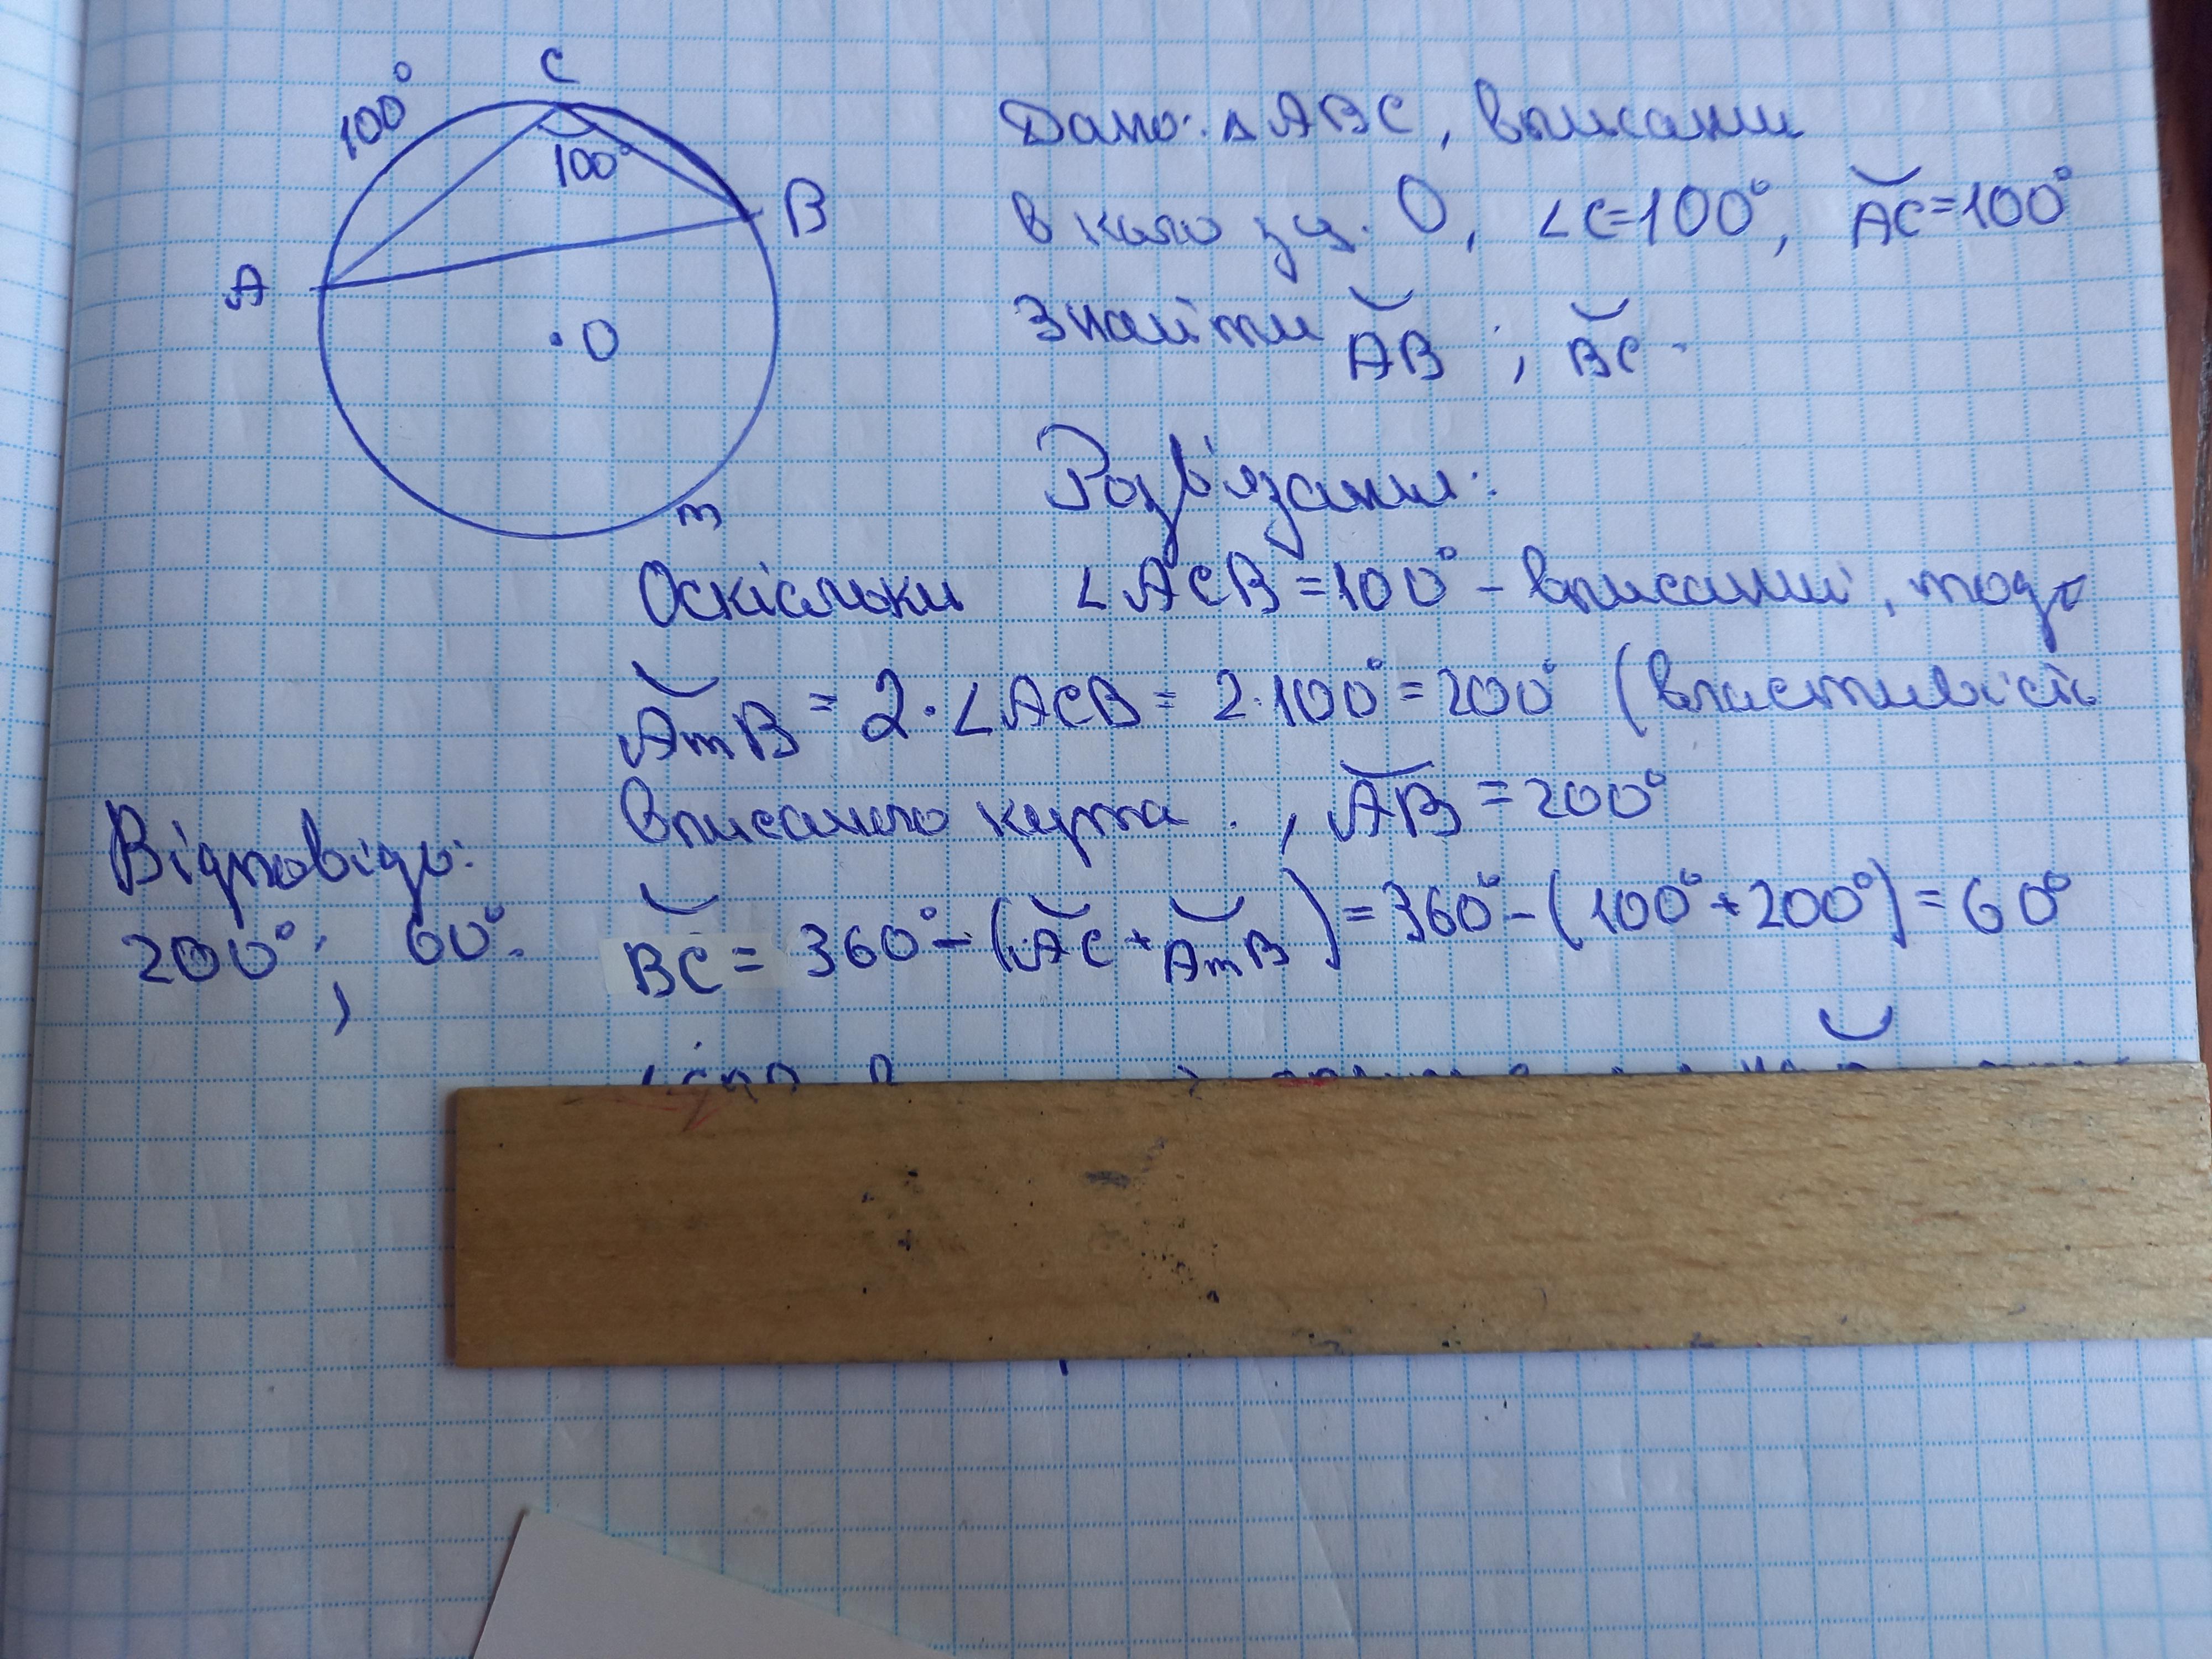 C
100°
100°
B
A
O
m
Дано: △ABC, вписаний
в коло з ц. O, ∠C=100°, ◡AC=100°
Знайти ◡AB ; ◡BC.
Розв'язання:
Оскільки ∠ACB=100° – вписаний, тоді
◡AmB = 2·∠ACB = 2·100°=200° (властивість
вписаного кута . , ◡AB = 200°
◡BC = 360° – (◡AC + ◡AmB) = 360° – (100°+200°) = 60°
Відповідь:
200°; 60°.